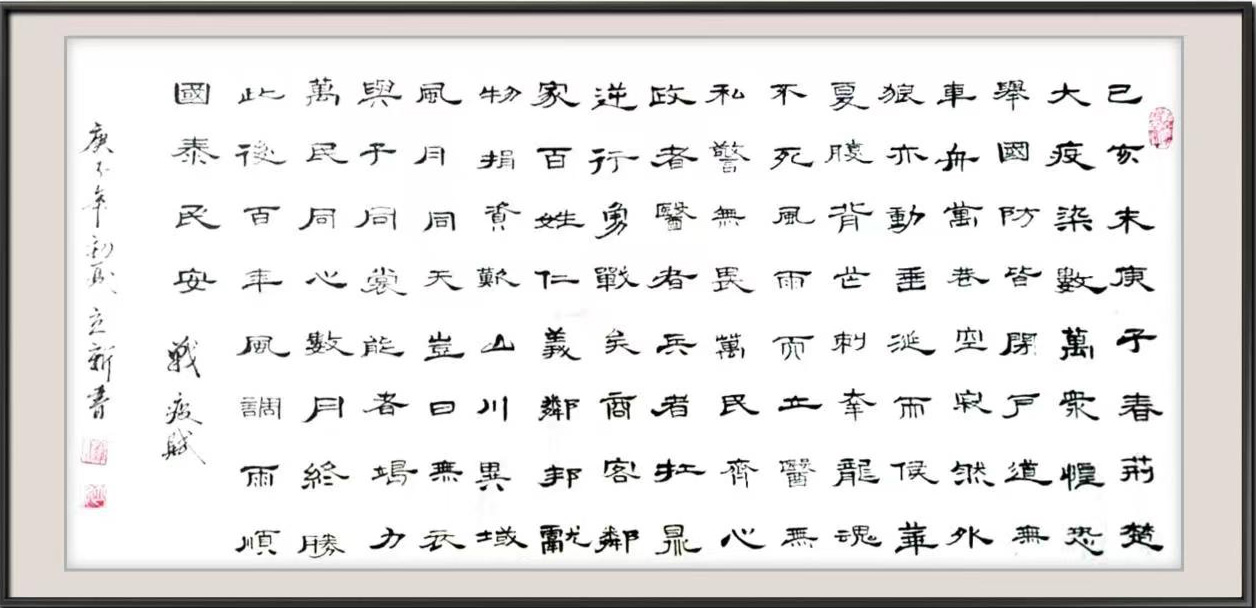 己亥末庚子春荊楚
大疫染數萬眾惶恐
舉國防皆閉戶道無
車舟萬巷空寂然外
狼亦動垂涎而侯華
夏腹背芒刺幸龍魂
不死風雨而立醫無
私警無畏萬民齊心
政者醫者兵者扛鼎
逆行勇戰矣商客鄰
家百姓仁義鄰邦獻
物捐資艱山川異域
風月同天豈曰無衣
與子同裳能者竭力
萬民同心數月終勝
此後百年風調雨順
國泰民安 戰疫賦
庚子年初夏立新書